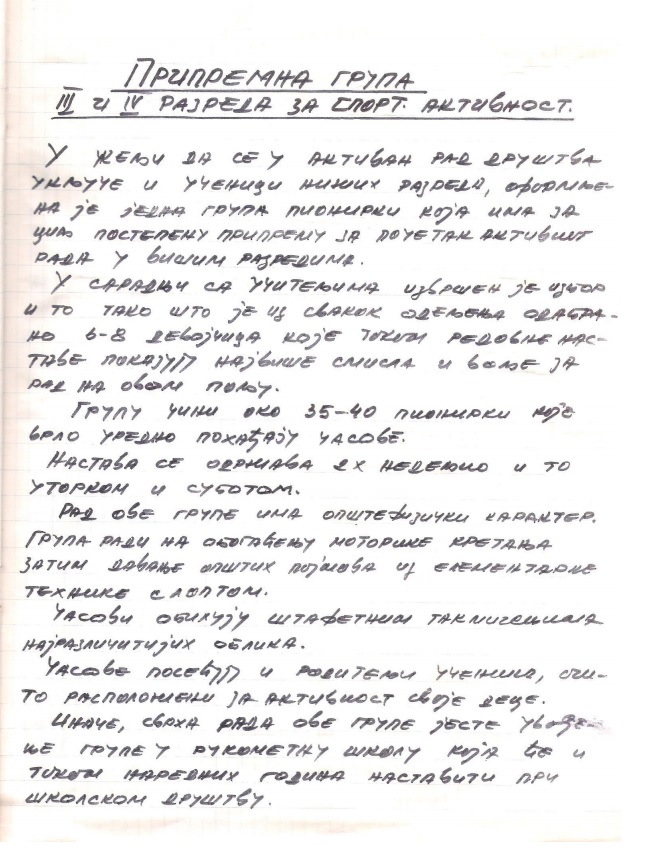 Припремна група
III и IV разреда за спорт. активност.
У жељи да се у активан рад друштва
укључе и ученици нижих разреда, оформље-
на је једна група пионирки која има за
циљ постепену припрему за почетак активног
рада у вишим разредима.
У сарадњи са учитељима извршен је избор
и то тако што је из сваког одељења одабра-
но 6-8 девојчица које током редовне нас-
таве показују највише смисла и воље за
рад на овом пољу.
Групу чини око 35-40 пионирки које
врло уредно похађају часове.
Настава се одржава 2х недељно и то
уторком и суботом.
Рад ове групе има општефизички карактер.
Група ради на обогаћењу моторике кретања
затим давање општих појмова из елементарне
технике с лоптом.
Часови обилују штафетним такмичењима
најразличитијих облика.
Часове посећују и родитељи ученица, очи-
то расположени за активност своје деце.
Иначе, сврха рада ове групе јесте увође-
ње групе у рукометну школу која ће и
током наредних година наставити при
школском друштву.